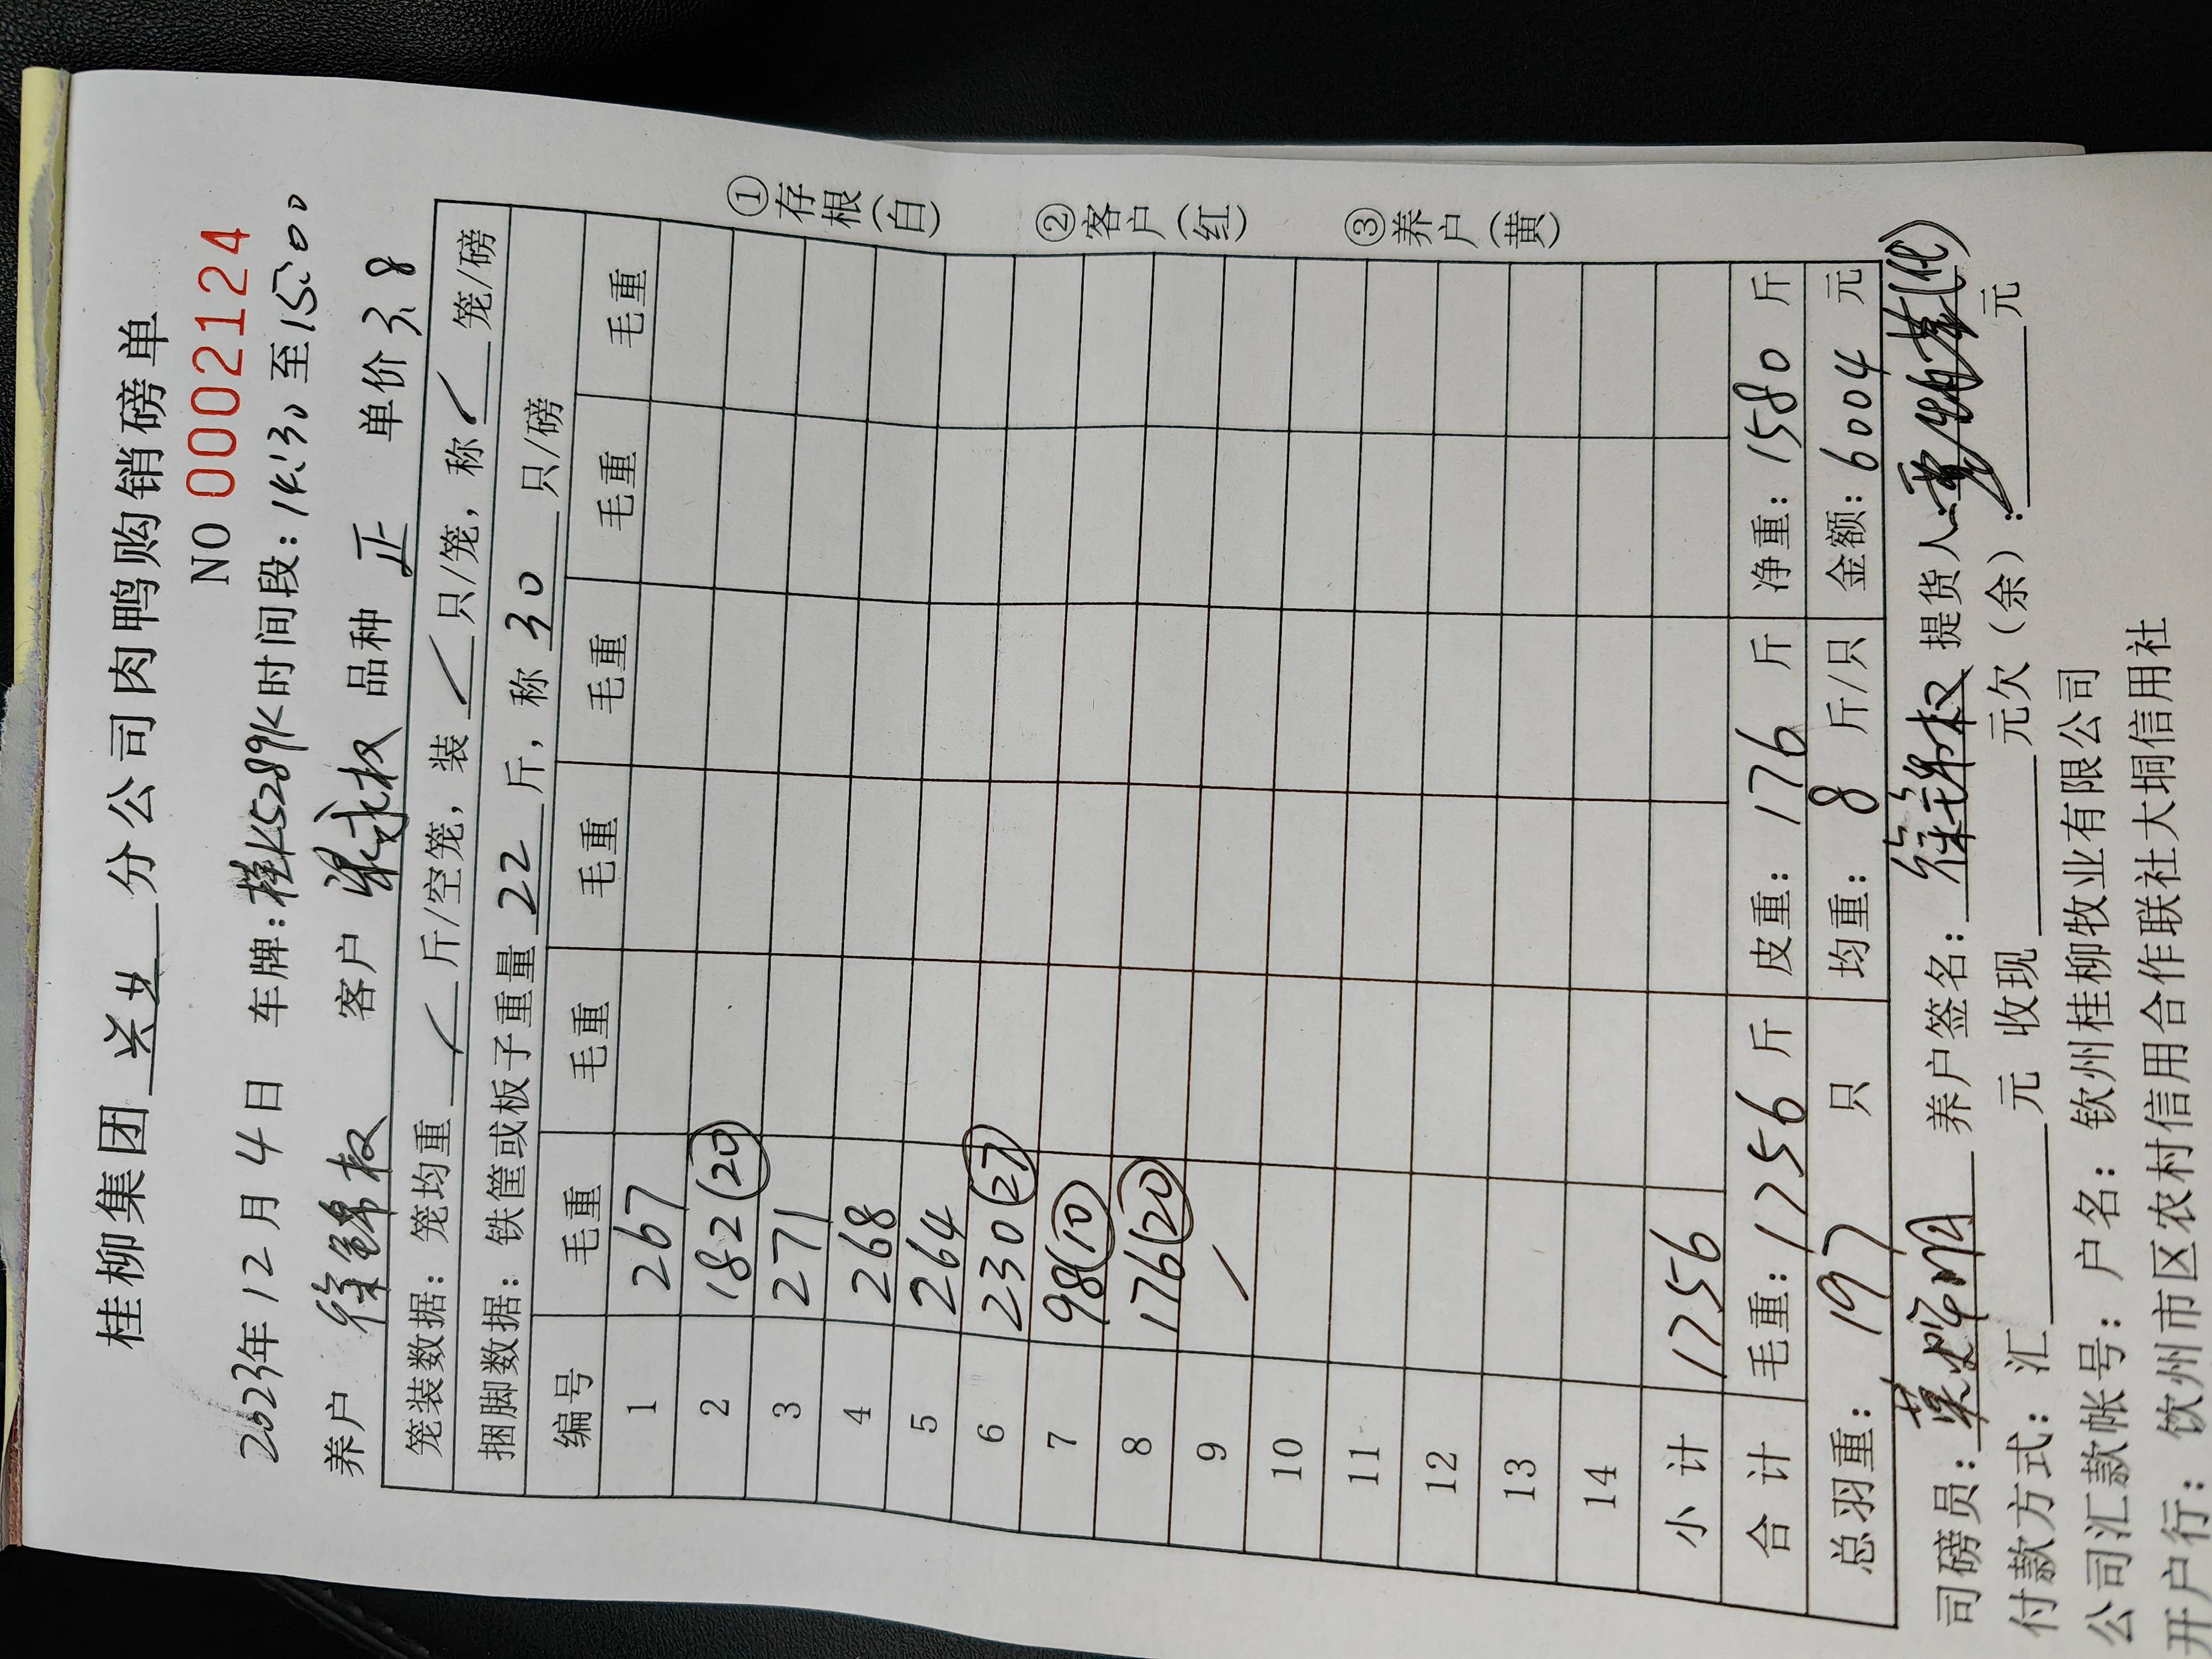 桂柳集团 兴业 分公司肉鸭购销磅单
NO 0002124
2023年12月4日 车牌:桂K5289K时间段:14:30至15:00
养户 徐锦权 客户 梁永权 品种 正 单价 3.8
笼装数据: 笼均重 / 斤/空笼, 装 / 只/笼, 称 / 笼/磅
捆脚数据: 铁筐或板子重量 22 斤, 称 30 只/磅
编号 毛重 毛重 毛重 毛重 毛重 毛重
1 267
2 182 (20)
3 271
4 268
5 264
6 230 (27)
7 98 (10)
8 176 (20)
9 /
10
11
12
13
14
小计 1756
合计 毛重: 1756 斤 皮重: 176 斤 净重: 1580 斤
总羽重: 197 只 均重: 8 斤/只 金额: 6004 元
①存根(白)
②客户(红)
③养户(黄)
司磅员: 养户签名: 徐锦权 提货人:
付款方式: 汇 元 收现 元欠(余): 元
公司汇款帐号: 户名: 钦州桂柳牧业有限公司
开户行: 钦州市区农村信用合作联社大垌信用社